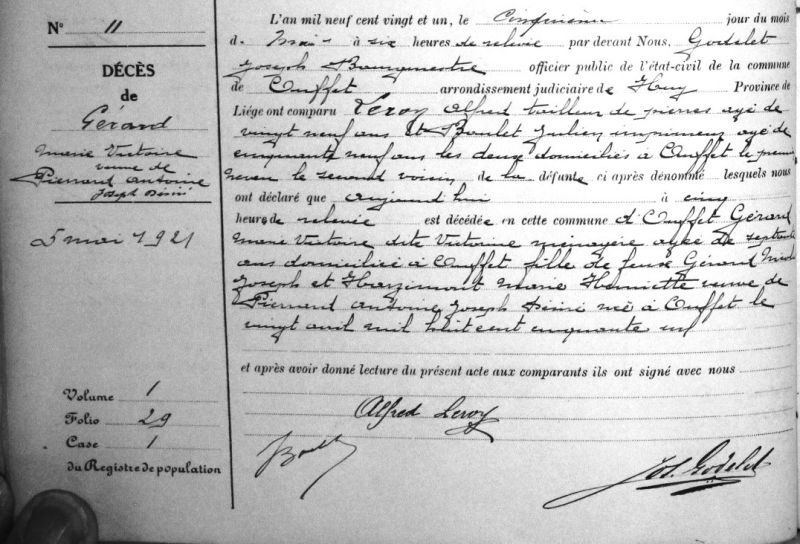 N° 11
DÉCÈS
de
Gérard
Marie Victoire
veuve de
Pierrard Antoine
Joseph Désiré
5 mai 1921
Volume 1
Folio 29
Case 1
du Registre de population
L'an mil neuf cent vingt et un, le cinquième jour du mois
d. Mai à six heures de relevée par devant Nous, Godelet
Joseph Bourgmestre officier public de l'état-civil de la commune
de Ouffet arrondissement judiciaire de Huy Province de
Liége ont comparu Leroy Alfred tailleur de pierres agé de
vingt neuf ans et Boulet Julien imprimeur agé de
cinquante neuf ans les deux domiciliés à Ouffet le premier
neveu le second voisin de la défunte ci après dénommé lesquels nous
ont déclaré que aujourd'hui à cinq
heures de relevée est décédée en cette commune d'Ouffet Gérard
Marie Victoire dite Victorine ménagère agée de septante
ans domiciliée à Ouffet fille de feus Gérard
Joseph et Harzimont Marie Henriette veuve de
Pierrard Antoine Joseph Désiré née à Ouffet le
vingt avril mil huit cent cinquante un
et après avoir donné lecture du présent acte aux comparants ils ont signé avec nous
Alfred Leroy
JBoulet
Jos. Godelet